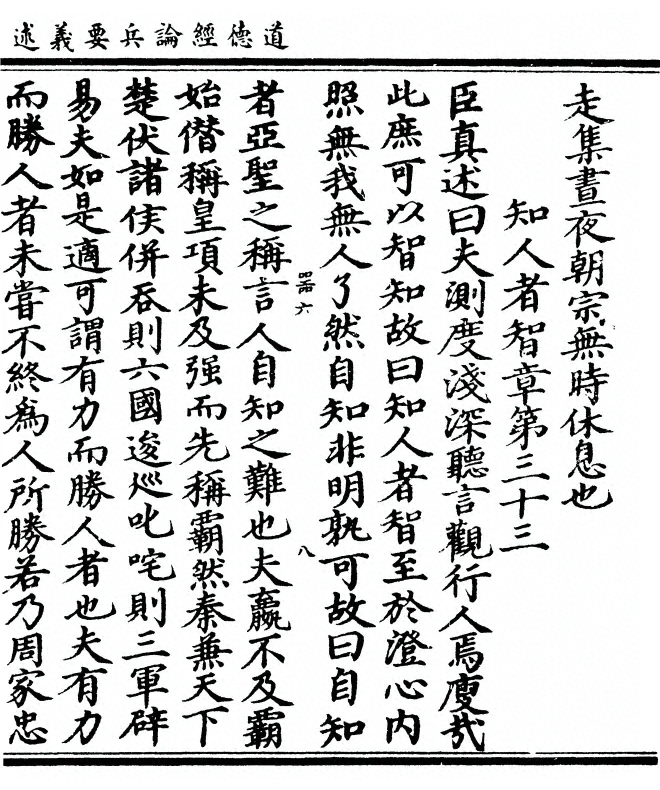 道德經論兵要義述
走集晝夜朝宗無時休息也
知人者智章第三十三
臣真述曰夫測度淺深聽言觀行人焉廋哉
此庶可以智知故曰知人者智至於澄心內
照無我無人了然自知非明孰可故曰自知
器六
八
者亞聖之稱言人自知之難也夫嬴不及霸
始僭稱皇項未及强而先稱霸然秦兼天下
楚伏諸侯併吞則六國逡巡叱咤則三軍辟
易夫如是適可謂有力而勝人者也夫有力
而勝人者未嘗不終為人所勝若乃周家忠